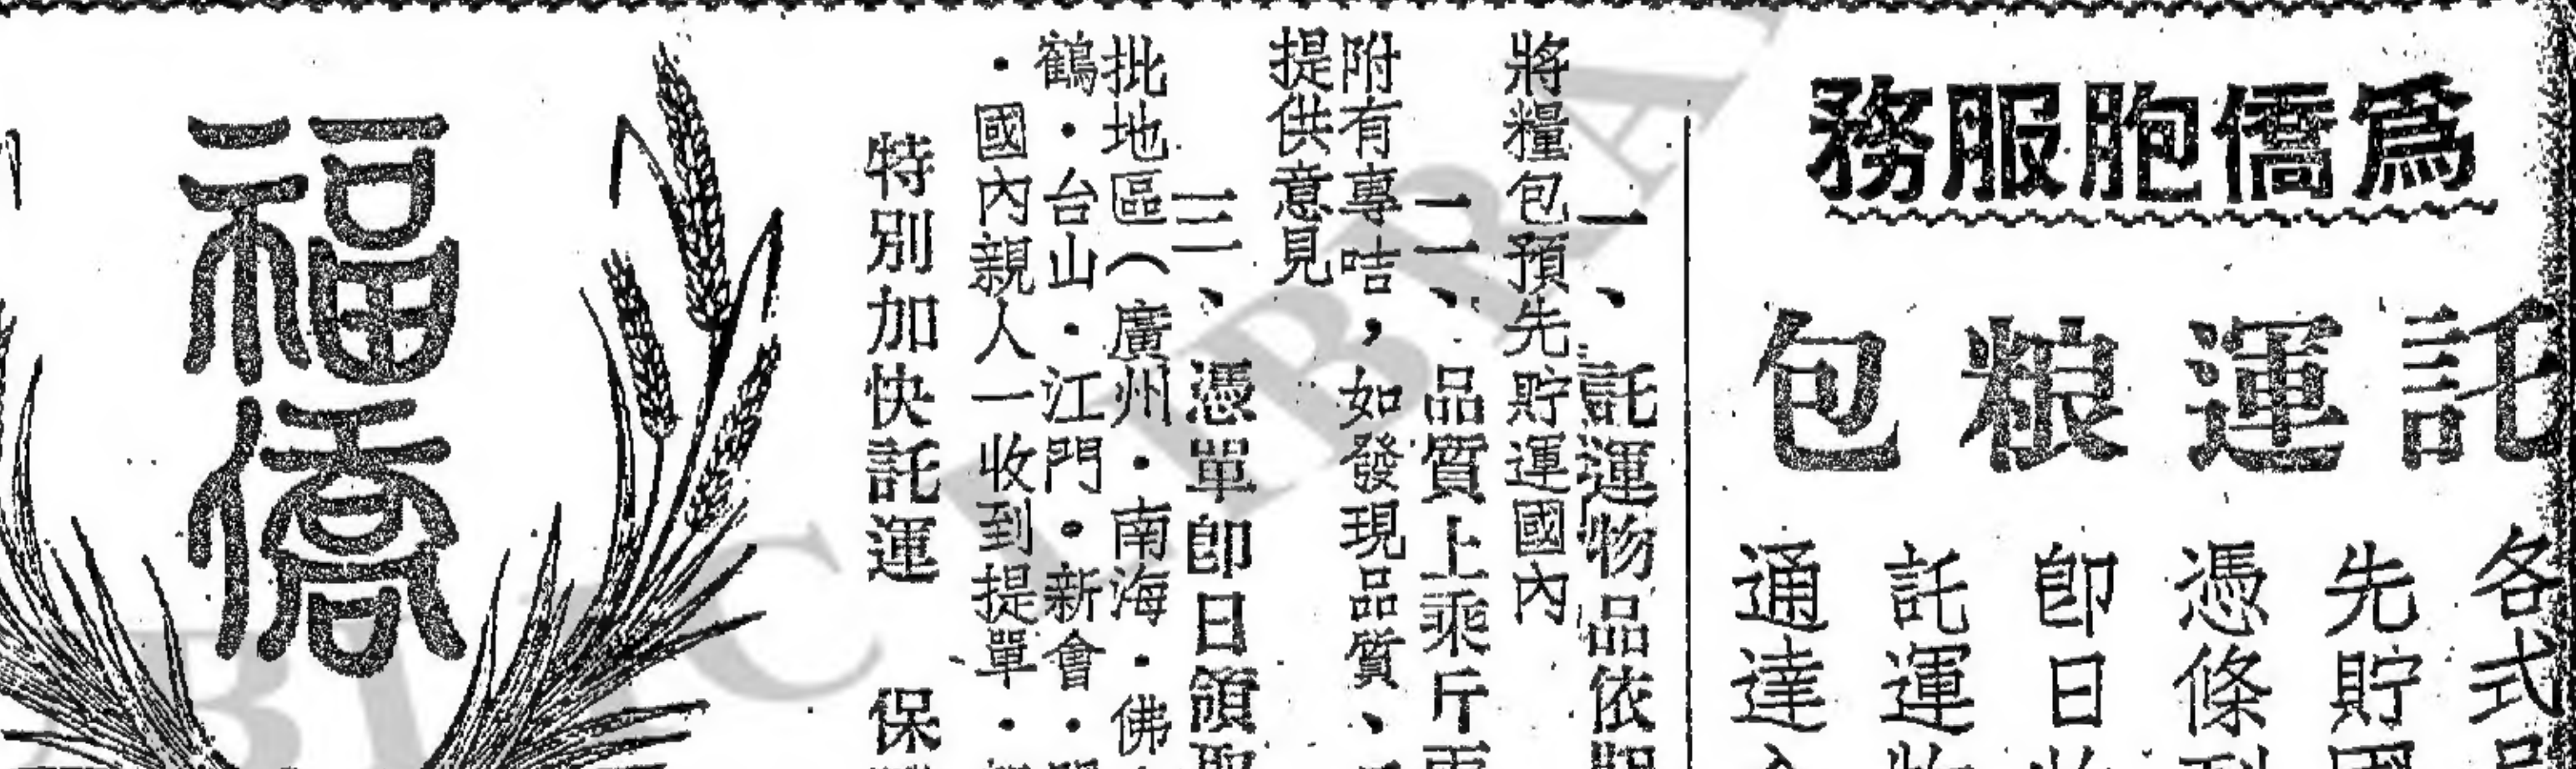 爲僑胞服務
託運粮包
各式
先貯
憑條
卽日
託運
通達
一、託運物品依
將糧包預先貯運國內
二、品質上乘斤
附有專咭，如發現品質、
提供意見
三、憑單卽日領取
批地區（廣州・南海・佛
鶴・台山・江門・新會・
・國內親人一收到提單・
特別加快託運 保
福僑